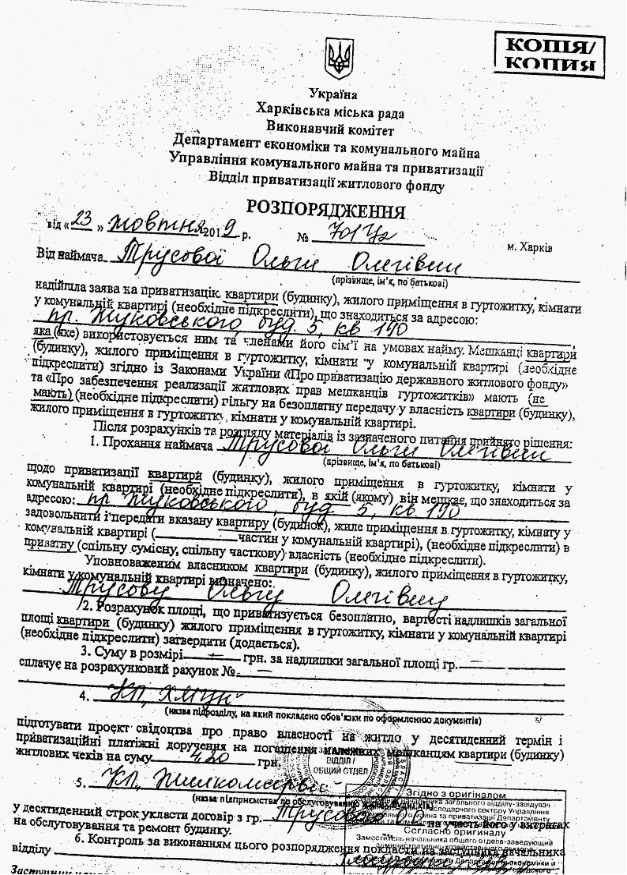 КОПІЯ/
КОПИЯ
Україна
Харківська міська рада
Виконавчий комітет
Департамент економіки та комунального майна
Управління комунального майна та приватизації
Відділ приватизації житлового фонду
РОЗПОРЯДЖЕННЯ
від «23» жовтня 2019 р. № м. Харків
Від наймача Трусової Ольги Олегівни
(прізвище, ім'я, по батькові)
надійшла заява на приватизацію квартири (будинку), жилого приміщення в гуртожитку, кімнати
у комунальній квартирі (необхідне підкреслити), що знаходиться за адресою:
пр. Жуковського буд. 5, кв 190,
яка (яке) використовується ним та членами його сім'ї на умовах найму. Мешканці квартири
(будинку), жилого приміщення в гуртожитку, кімнати у комунальній квартирі (необхідне
підкреслити) згідно із Законами України «Про приватизацію державного житлового фонду»
та «Про забезпечення реалізації житлових прав мешканців гуртожитків» мають (не
мають) (необхідне підкреслити) пільгу на безоплатну передачу у власність квартири (будинку),
жилого приміщення в гуртожитку, кімнати у комунальній квартирі.
Після розрахунків та розгляду матеріалів із зазначеного питання прийнято рішення:
1. Прохання наймача Трусової Ольги Олегівни
(прізвище, ім'я, по батькові)
щодо приватизації квартири (будинку), жилого приміщення в гуртожитку, кімнати у
комунальній квартирі (необхідне підкреслити), в якій (якому) він мешкає, що знаходиться за
адресою: пр. Жуковського, буд 5, кв 190
задовольнити і передати вказану квартиру (будинок), жиле приміщення в гуртожитку, кімнату у
комунальній квартирі (частин у комунальній квартирі), (необхідне підкреслити) в
приватну (спільну сумісну, спільну часткову) власність (необхідне підкреслити).
Уповноваженим власником квартири (будинку), жилого приміщення в гуртожитку,
кімнати у комунальній квартирі визначено:
Трусову Ольгу Олегівну
2. Розрахунок площі, що приватизується безоплатно, вартості надлишків загальної
площі квартири (будинку) жилого приміщення в гуртожитку, кімнати у комунальній квартирі
(необхідне підкреслити) затвердити (додається).
3. Суму в розмірі — грн. за надлишки загальної площі гр. —
сплачує на розрахунковий рахунок № —
4.
(назва підрозділу, на який покладено обов'язки по оформленню документів)
підготувати проект свідоцтва про право власності на житло у десятиденний термін і
приватизаційні платіжні доручення на погашення належних мешканцям квартири (будинку)
житлових чеків на суму грн.
ВІДДІЛ /
ОБЩИЙ ОТДЕЛ
5. КП
(назва підприємства по обслуговуванню
Згідно з оригіналом
загального відділу-завідувач
господарчого сектору Управління
майна та приватизації Департаменту
у десятиденний строк укласти договір з гр. на участь його у витратах
на обслуговування та ремонт будинку.
Согласно оригиналу
Заместитель начальника общего отдела-заведующий
6. Контроль за виконанням цього розпорядження покласти на заступника начальника
відділу